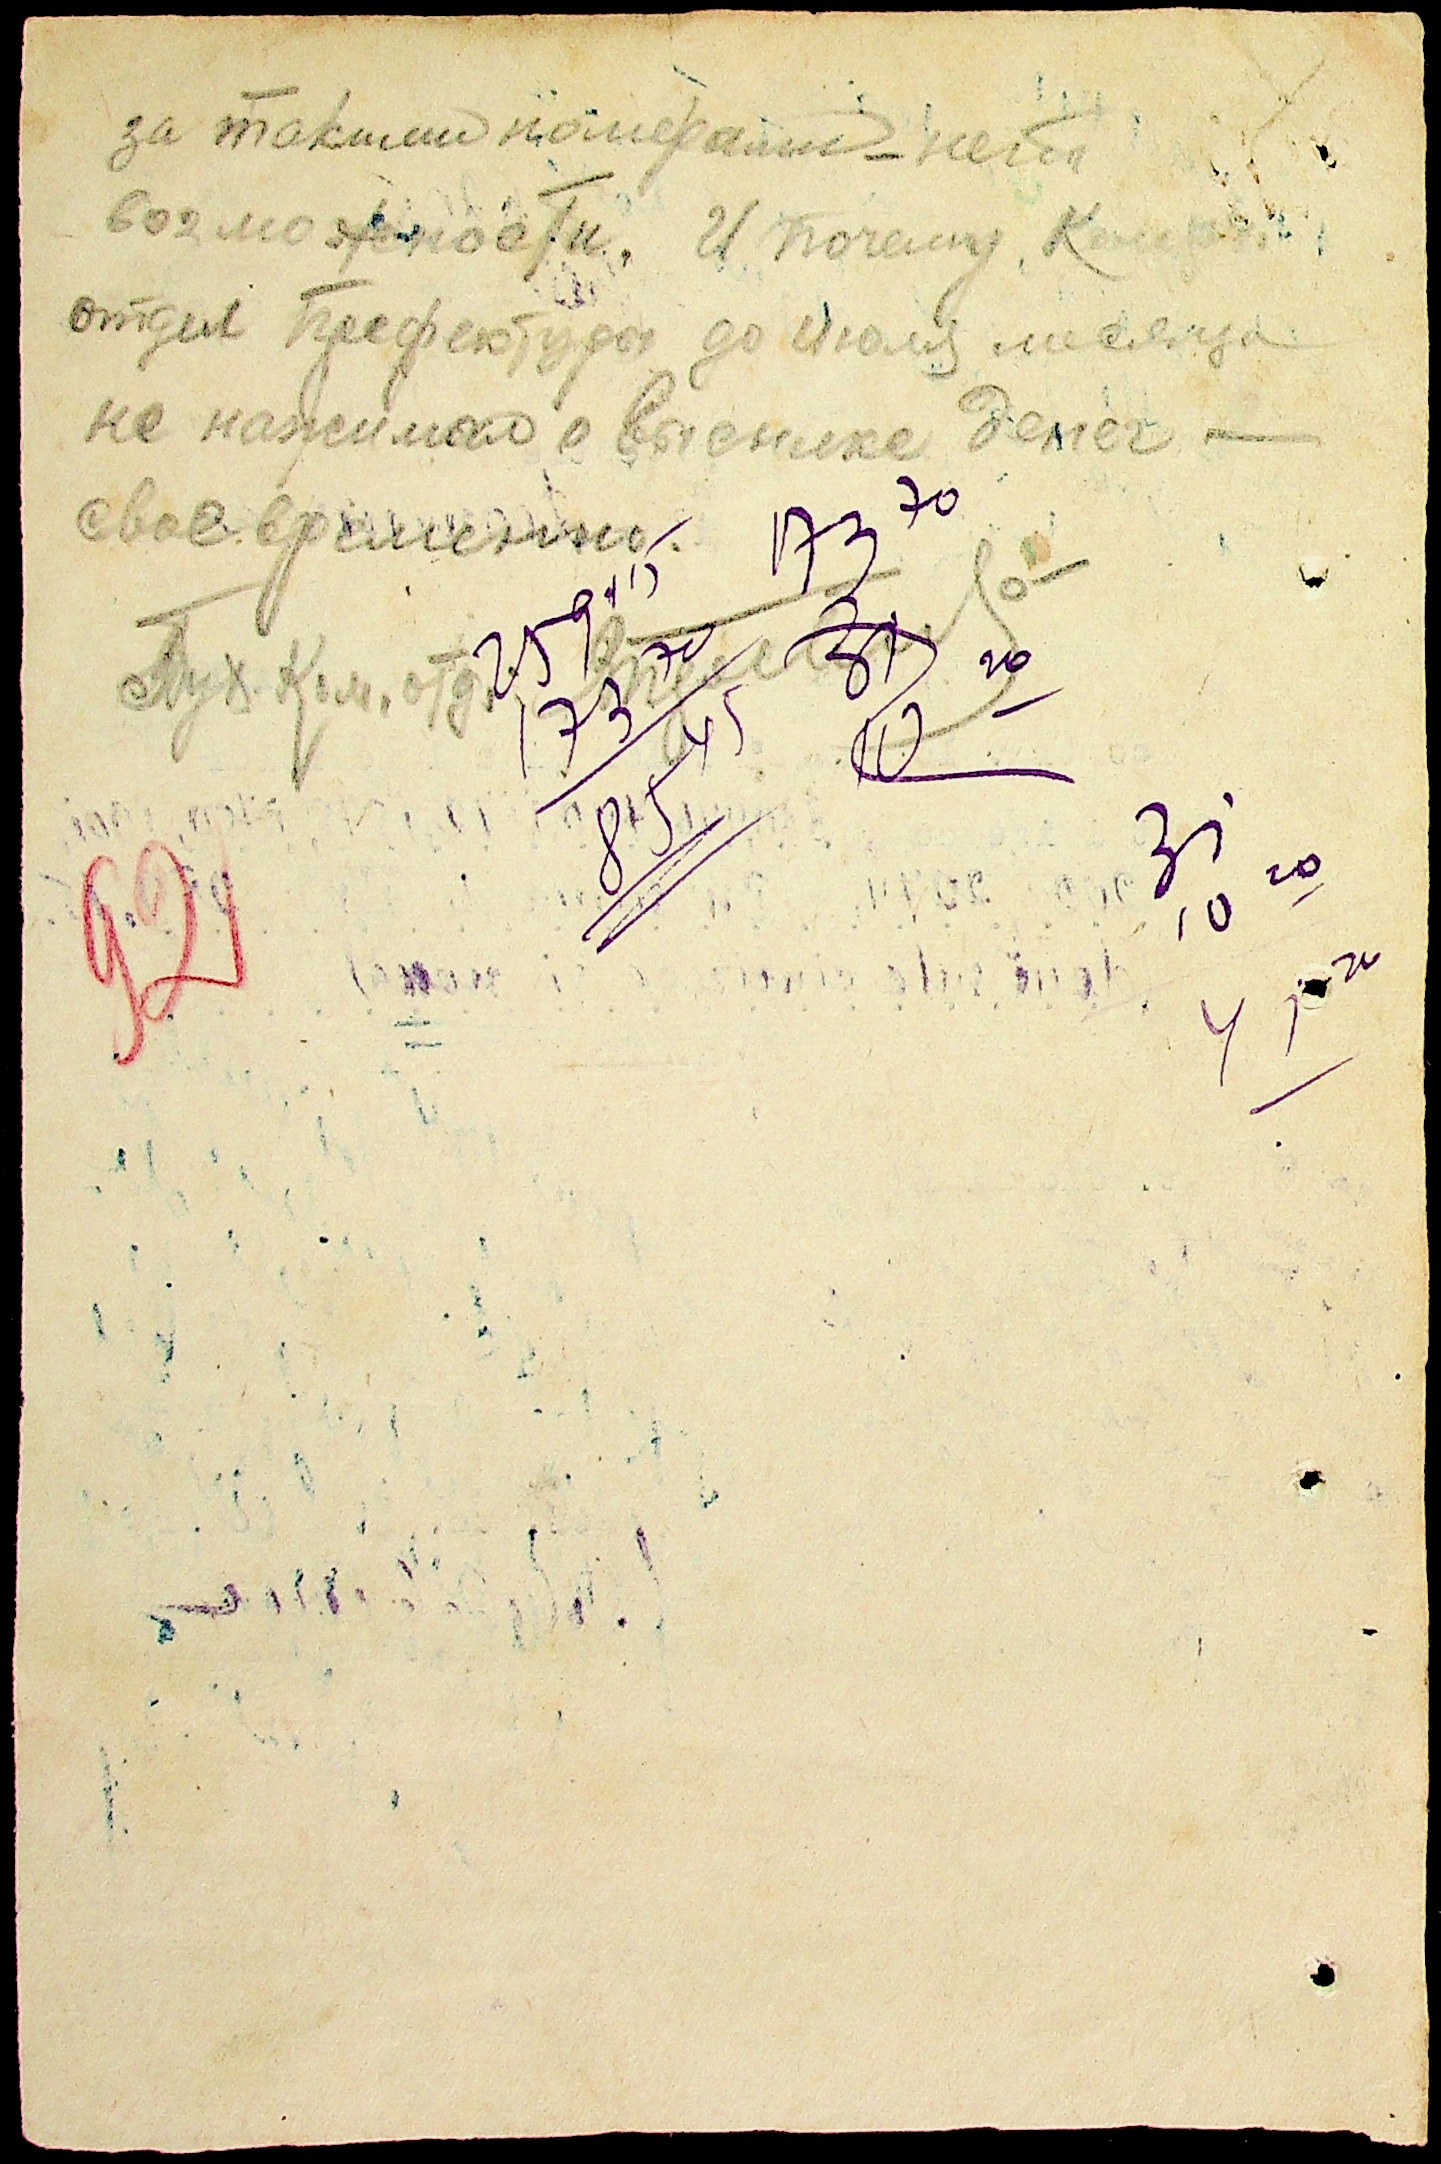 за такими номерами – нет
возможности. И почему Комун.
отдел Префектуры до Июля месяца
не нажимал о высылке денег —
своевременно.
Бух. Ком. отд.
173 70
259 15
173 70
85 45
31
10 20
31
10 20
41 20
92